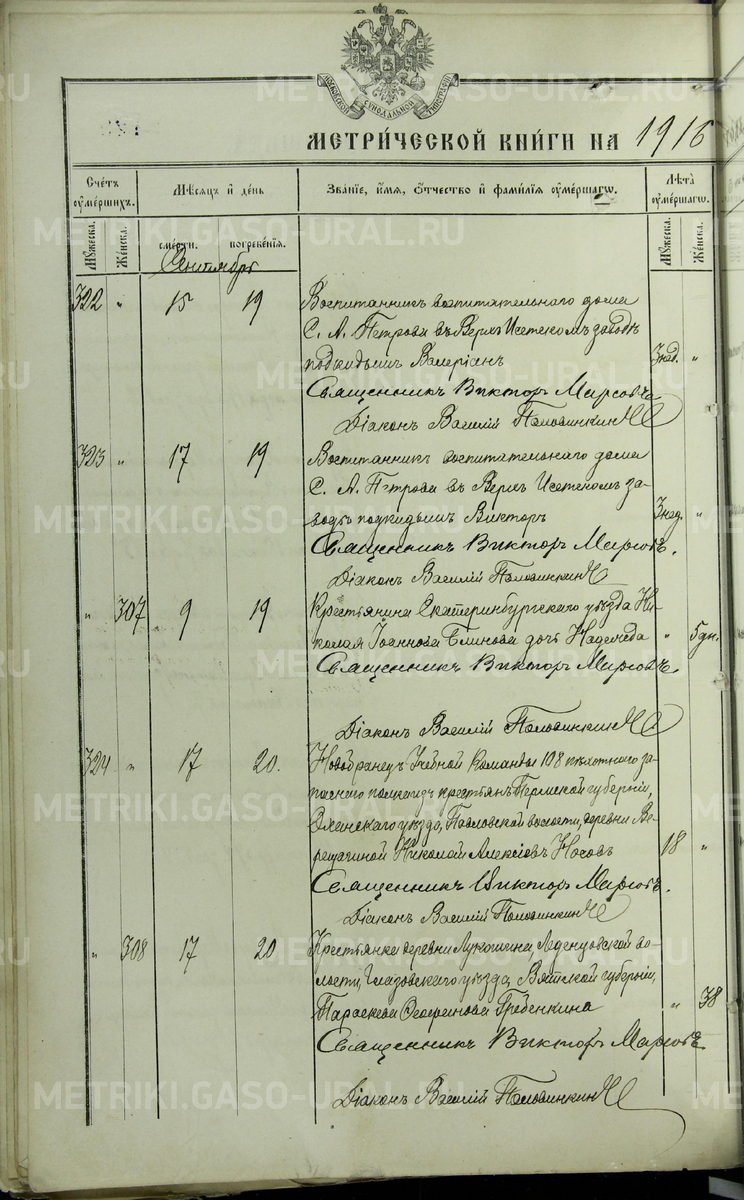 МОСКОВСКОЙ СѴНОДАЛЬНОЙ ТИПОГРАФІИ
МЕТРИ́ЧЕСКОЙ КНИ́ГИ НА 1916
Сче́тъ оуме́ршихъ.
Мѣ́сяцъ и де́нь
Зва́нїе, и́мѧ, ѻ́тчество и фами́лїѧ оуме́ршагѡ.
Лѣ́та оуме́ршагѡ.
Мꙋ́жеска.
Же́нска.
сме́рти.
погребе́нїѧ.
Мꙋ́жеска.
Же́нска.
Сентябрь
322 " 15 19 Воспитанникъ воспитательнаго дома
С. А. Петрова въ Верхъ Исетскомъ заводѣ
подкидышъ Валеріанъ 3 нед. "
Священникъ Викторъ
Діаконъ Василій Половинкинъ
323 " 17 19 Воспитанникъ воспитательнаго дома
С. А. Петрова въ Верхъ Исетскомъ за-
водѣ подкидышъ Викторъ 3 нед. "
Священникъ Викторъ
Діаконъ Василій Половинкинъ
" 307 9 19 Крестьянина Екатеринбургскаго уѣзда Ни-
колая Іоаннова Блинова дочь Надежда " 5 дн.
Священникъ Викторъ
Діаконъ Василій Половинкинъ
324 " 17 20. Новобранецъ Учебной Команды 108 пѣхотнаго за-
паснаго полка изъ крестьянъ Пермской губерніи,
Оханскаго уѣзда, Павловской волости, деревни Ве-
рещагиной Николай Алексіевъ Носовъ 18 "
Священникъ Викторъ
Діаконъ Василій Половинкинъ
" 308 17 20 Крестьянка деревни Лукошина, Леденцовской во-
лости, Глазовскаго уѣзда, Вятской губерніи,
Параскева Гребенкина " 38
Священникъ Викторъ
Діаконъ Василій Половинкинъ
METRIKI.GASO-URAL.RU